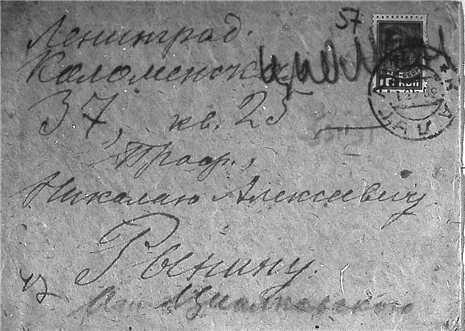 57
Ленинград.
Коломенская
37, кв. 25
Проф.,
Николаю Алексеевичу
Рынину.
От Циолковского